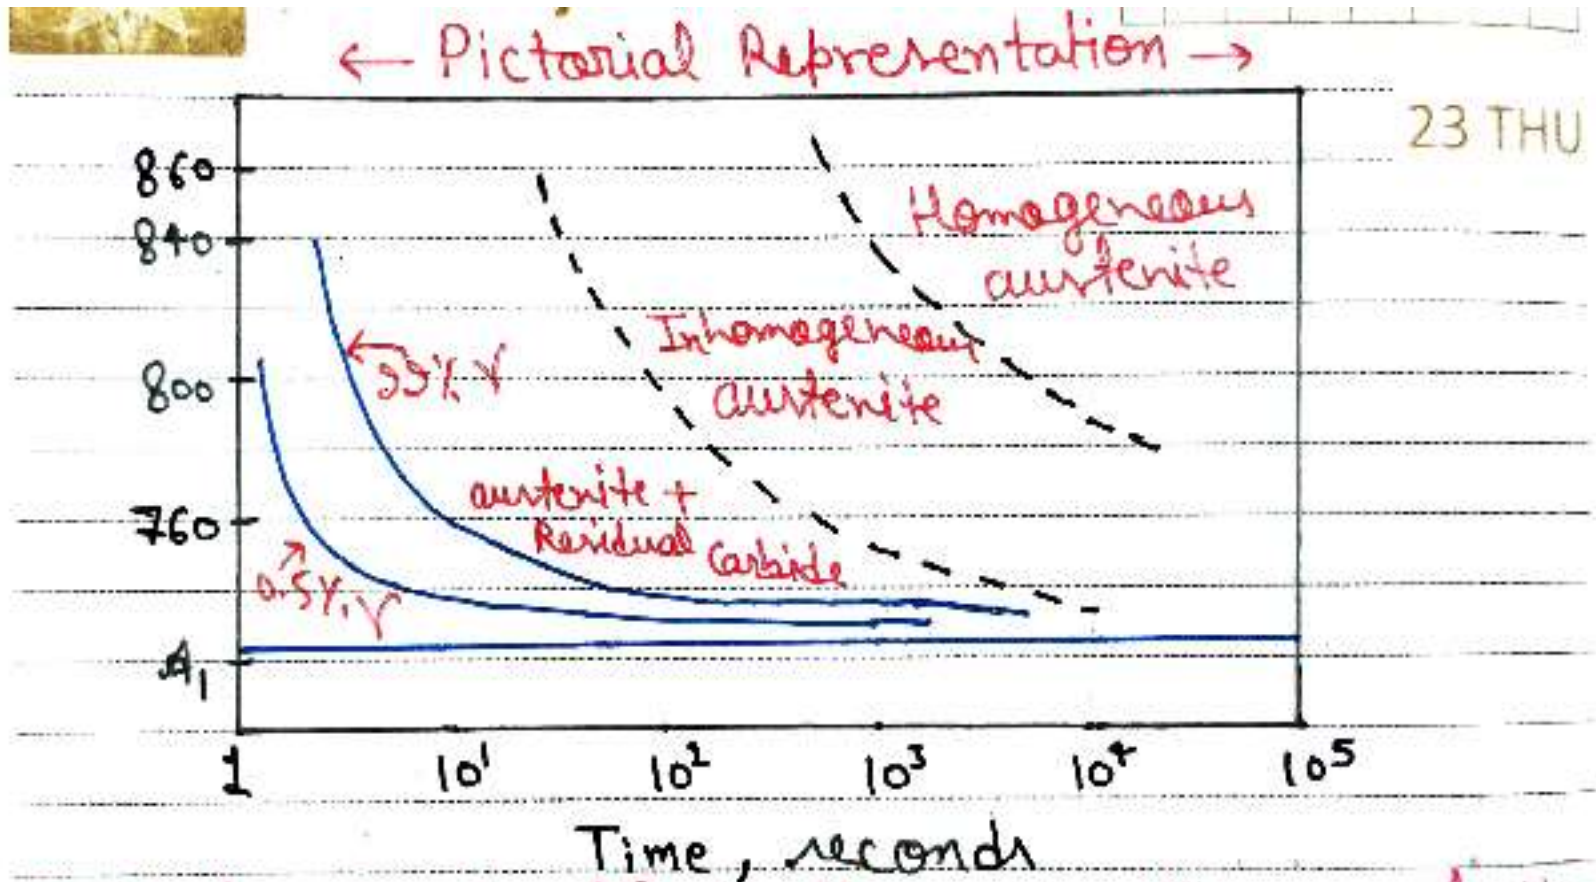 ← Pictorial Representation →
23 THU
860
840
800
760
A₁
Homogeneous
austenite
Inhomogeneous
austenite
99% γ
austenite +
Residual Carbide
0.5% γ
1 10¹ 10² 10³ 10⁴ 10⁵
Time, seconds